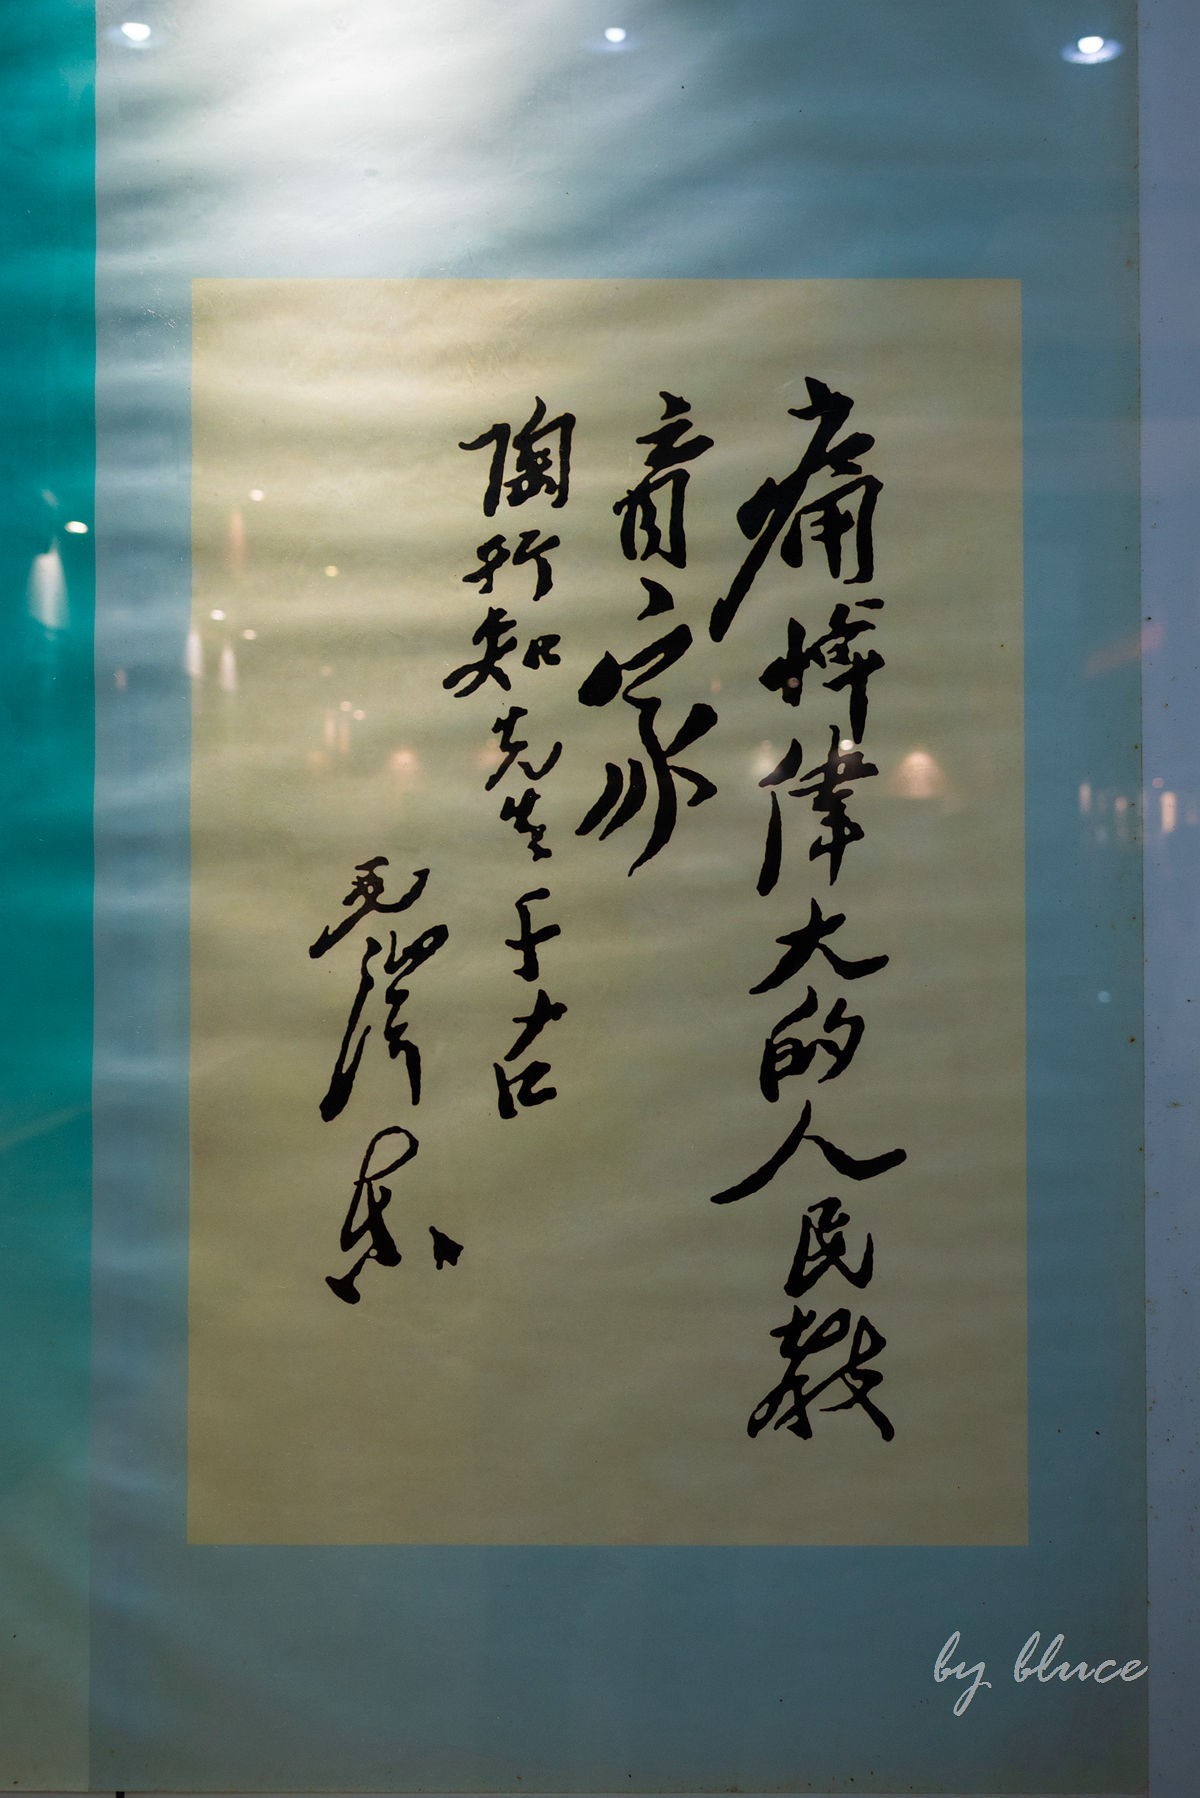 痛悼偉大的人民教
育家
陶行知先生千古
毛澤東
by bluce